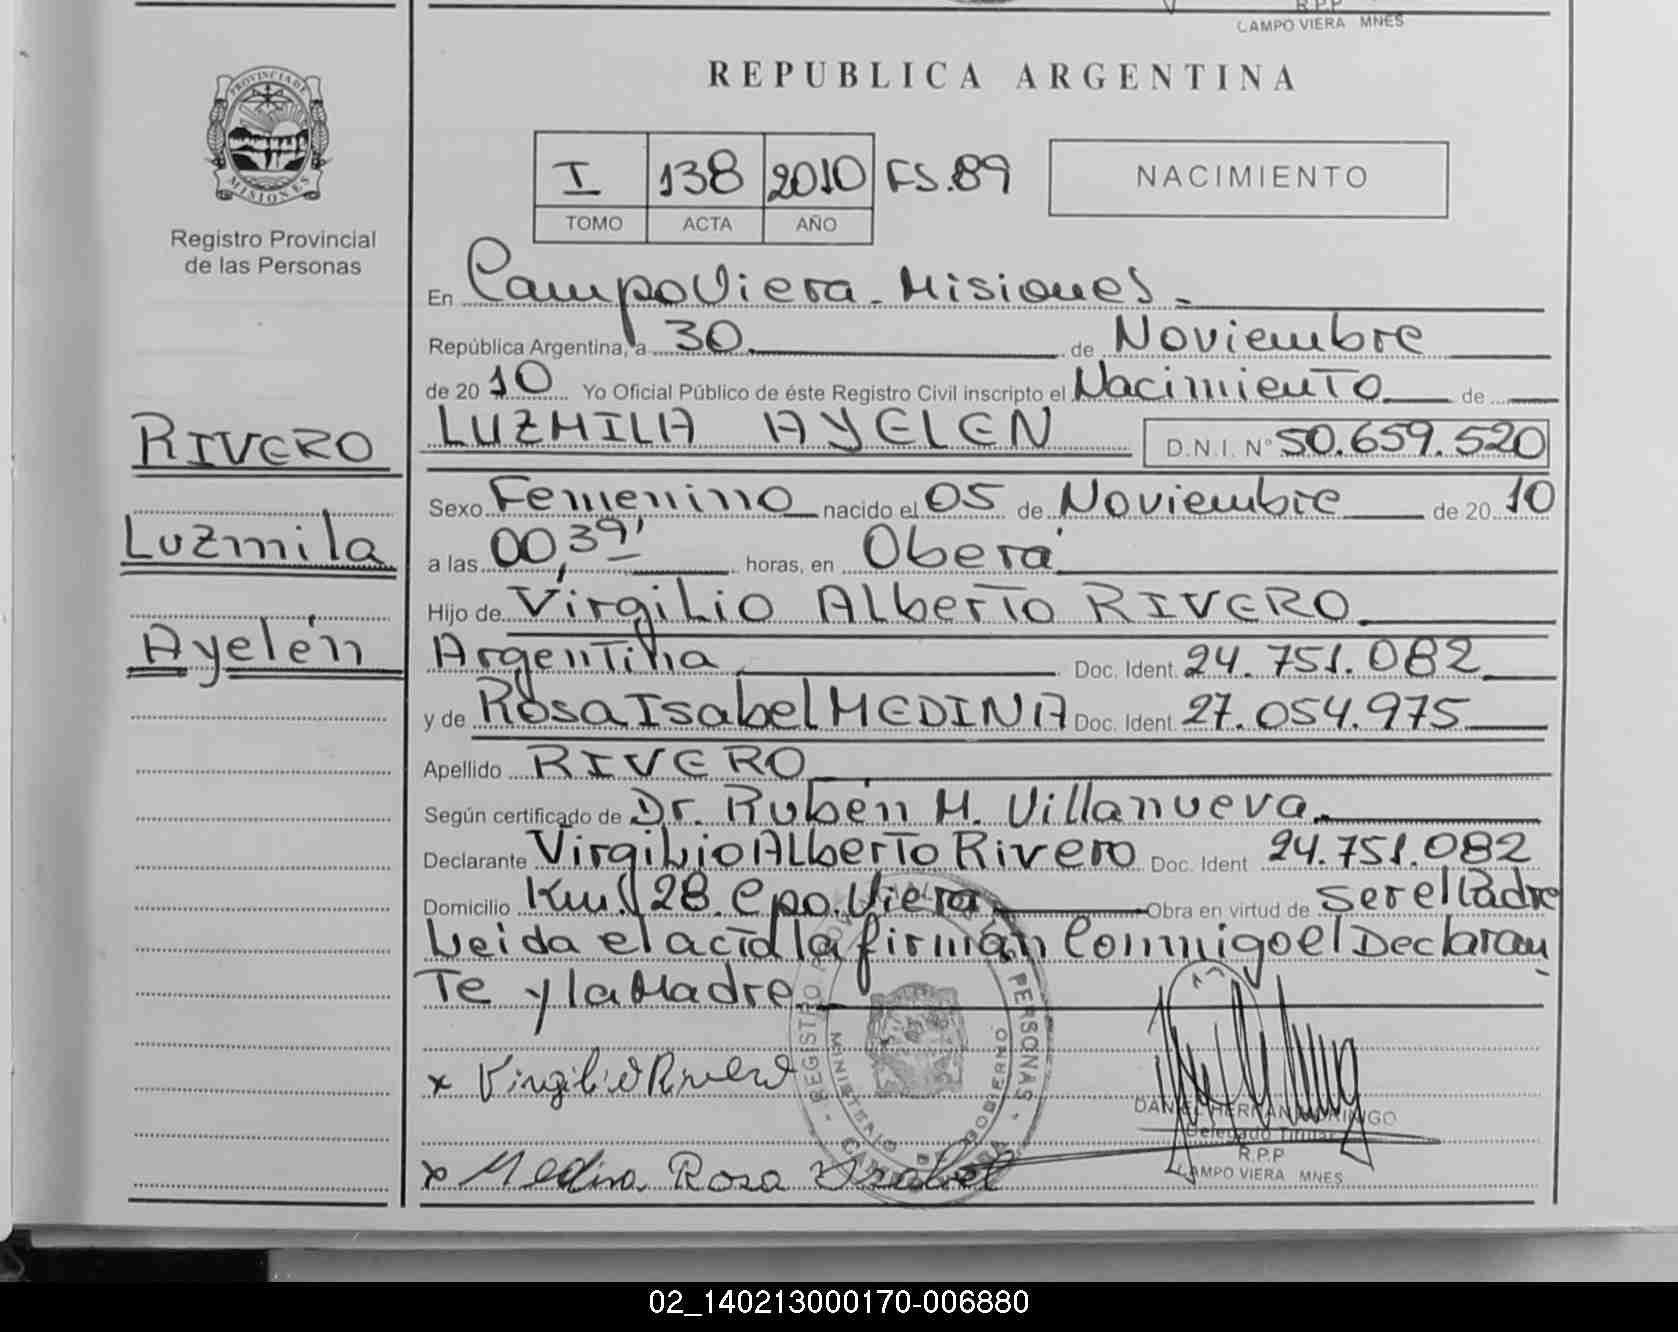 R.P.P
CAMPO VIERA MNES
PROVINCIA DE
MISIONES
Registro Provincial
de las Personas
RIVERO
Luzmila
Ayelén
REPUBLICA ARGENTINA
I 138 2010 FS.89
TOMO ACTA AÑO
NACIMIENTO
En Campo Viera - Misiones -
República Argentina, a 30 de Noviembre
de 20 10 Yo Oficial Público de éste Registro Civil inscripto el Nacimiento de
LUZMILA AYELEN D.N.I. N° 50.659.520
Sexo Femenino nacido el 05 de Noviembre de 20 10
a las 00,39' horas, en Oberá
Hijo de Virgilio Alberto RIVERO
Argentina Doc. Ident. 24.751.082
y de Rosa Isabel MEDINA Doc. Ident. 27.054.975
Apellido RIVERO
Según certificado de Dr. Rubén M. Villanueva
Declarante Virgilio Alberto Rivero Doc. Ident 24.751.082
Domicilio Km. 28. Cpo. Viera Obra en virtud de ser el Padre
Leida el acta la firman Conmigo el Declaran
Te y la Madre
x Virgilio Rivero
x Medina Rosa Isabel
REGISTRO PERSONAS
MINISTERIO DE GOBIERNO
Delegado Titular
R.P.P
CAMPO VIERA MNES
02_140213000170-006880